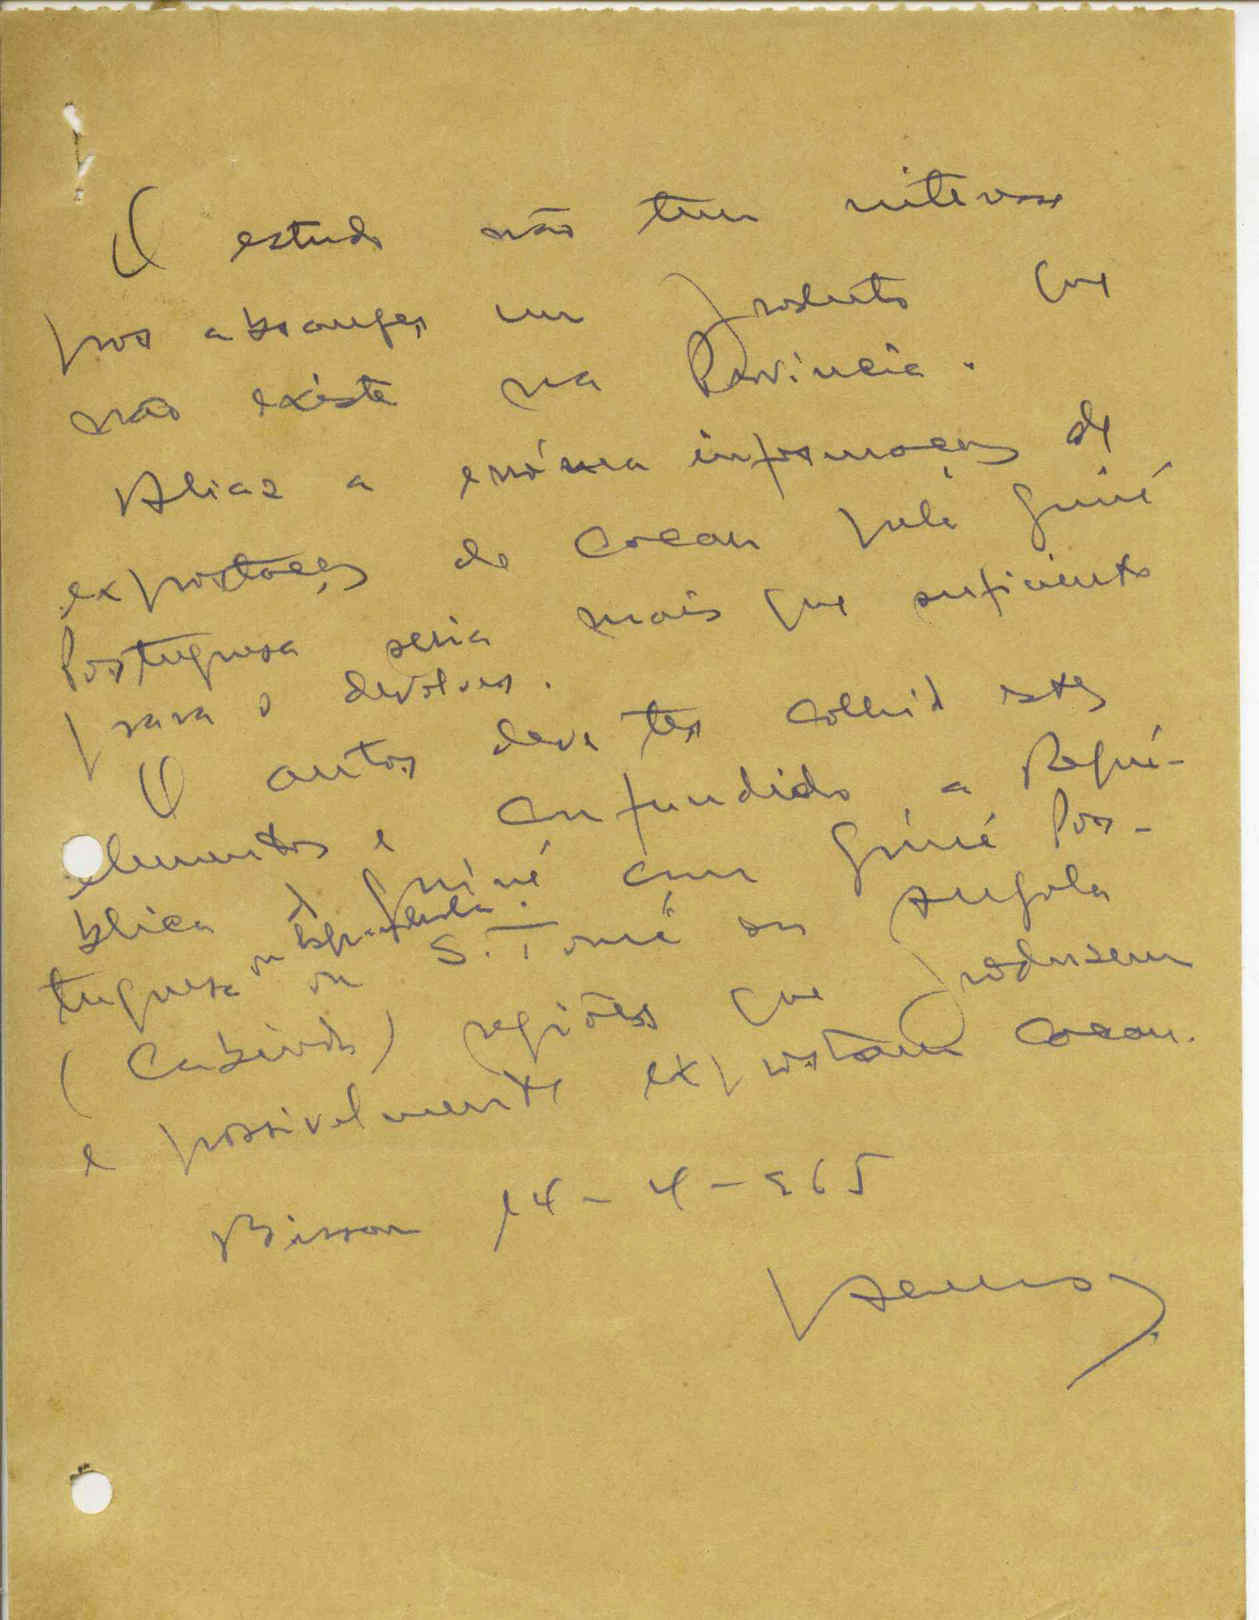 O estudo não tem interesse
por abranger um produto que
não existe na Provincia.
Alias a errónea informação de
exportação de cacau pela Guiné
Portuguesa seria mais que suficiente
para o devolver.
O autor deve ter colhido estes
elementos e confundido a Repú-
blica da Guiné com Guiné Por-
tuguesa ou Espanhola
ou S. Tomé ou Angola
(Cabinda) regiões que produzem
e possivelmente exportam cacau.
Bissau 14-4-965